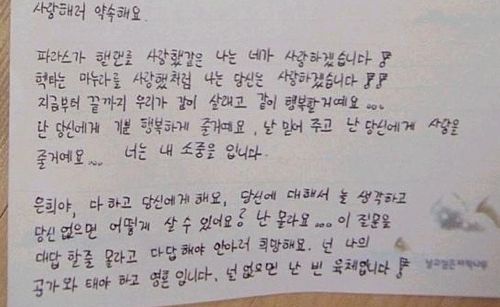 사랑해러 약속해요.
파라스가 핼랜를 사랑했같은 나는 네가 사랑하겠습니다
헥타는 마누라를 사랑했처럼 나는 당신은 사랑하겠습니다
지금부터 끝까지 우리가 같이 살래고 같이 행복할거예요...
난 당신에게 기분 행복하게 줄거예요, 날 믿어 주고 난 당신에게 사랑을
줄거예요... 너는 내 소중을 입니다.
은희야, 다 하고 당신에게 해요, 당신에 대해서 늘 생각하고
당신 없으면 어떻게 살 수 있어요? 난 몰라요... 이 질문을
대답 할줄 몰라고 다답해야 안아러 희망해요. 넌 나의
공가와 태야 하고 영혼 입니다. 널 없으면 난 빈 육체입니다